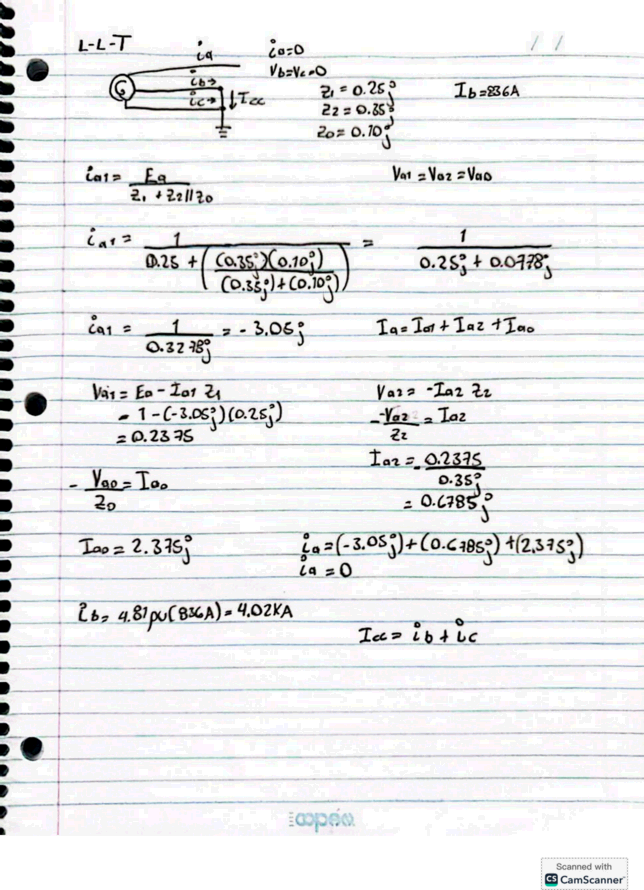 L-L-T
ia
ia=0
Vb=Vc=0
ib→
ic→
↓Icc
Z1 = 0.25j
Z2 = 0.35j
Z0 = 0.10j
Ib=836A
ia1 = Ea / Z1 + Z2||Z0
Va1 = Va2 = Va0
ia1 = 1 / 0.25 + ((0.35j)(0.10j) / (0.35j)+(0.10j)) = 1 / 0.25j + 0.0778j
ia1 = 1 / 0.3278j = -3.05j
Ia = Ia1 + Ia2 + Iao
Va1 = Ea - Ia1 Z1
= 1-(-3.05j)(0.25j)
= 0.2375
Va2 = -Ia2 Z2
-Va2 / Z2 = Ia2
Ia2 = -0.2375 / 0.35j
= 0.6785j
- Va0 / Z0 = Iao
Iao = 2.375j
ia=(-3.05j)+(0.6785j)+(2.375j)
ia = 0
ib= 4.81pu(836A) = 4.02KA
Icc = ib + ic
Scanned with
CS CamScanner